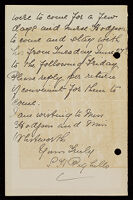 were to come for a few
days and Miss Hodgson
to come and stay with
us from Tuesday June
to the following Friday.
Please reply per return
if convenient for them to
come.
I am writing to Miss
Hodgson and Miss
Whitworth.
Yours truly